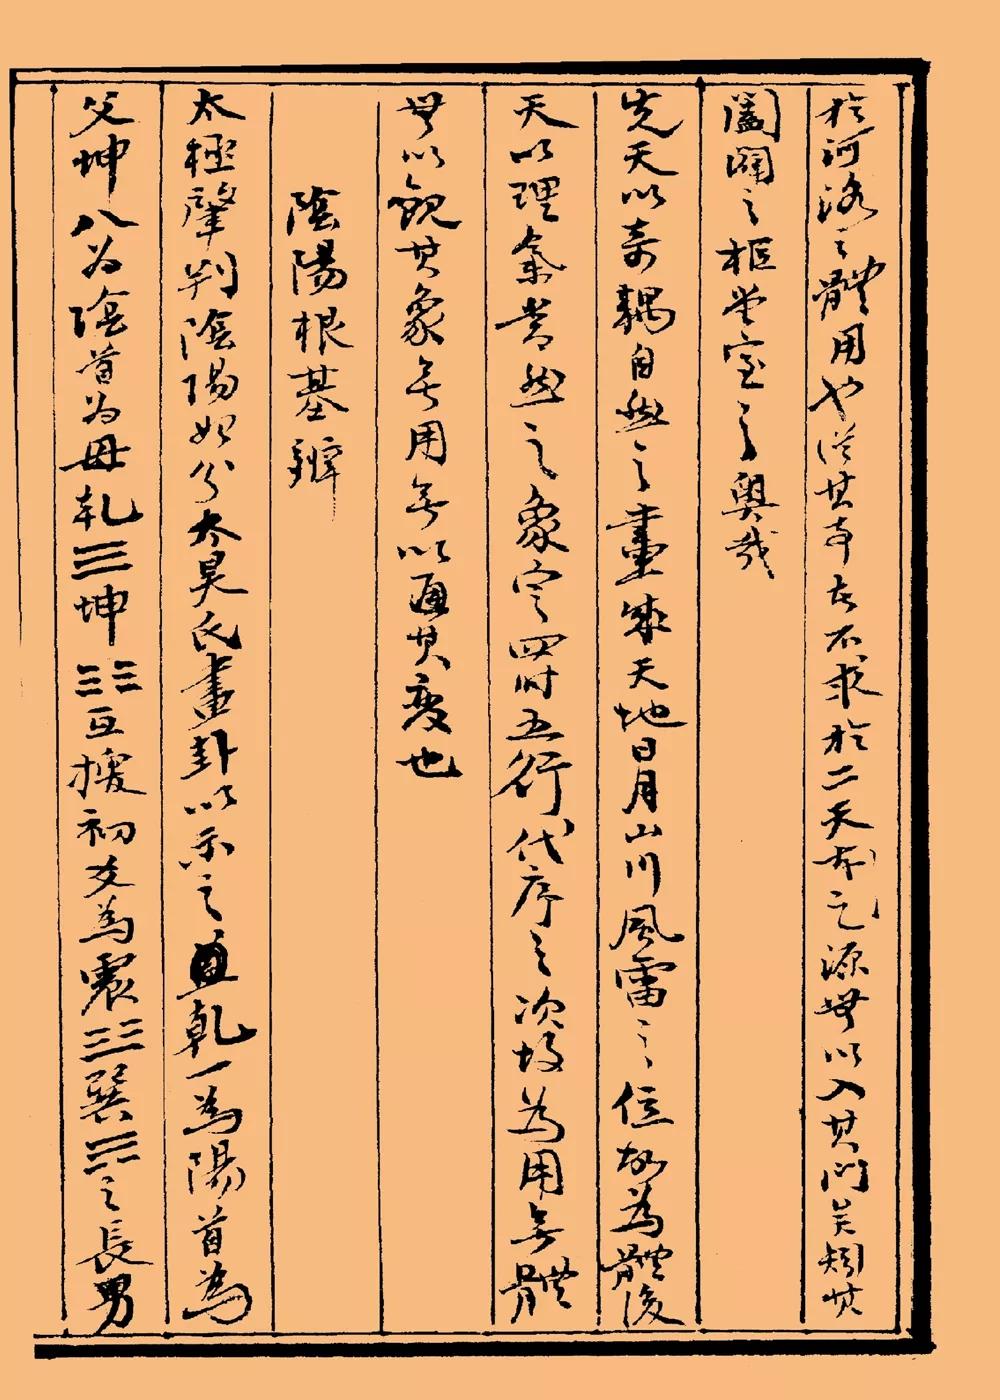 於河洛之體用也從其事者不求於二天本之源無以入其門矣矧其
闔闢之樞堂室之奧哉
先天以奇耦自然之畫乘天地日月山川風雷之位故為體後
天以理氣當然之象定四時五行代序之次故為用無體
毋以觀其象無用無以通其變也
陰陽根基辨
太極肇判陰陽始分太昊氏畫卦以示之直乾一為陽首為
父坤八為陰首為母乾☰坤☷互搜初爻為震☳巽☴之長男